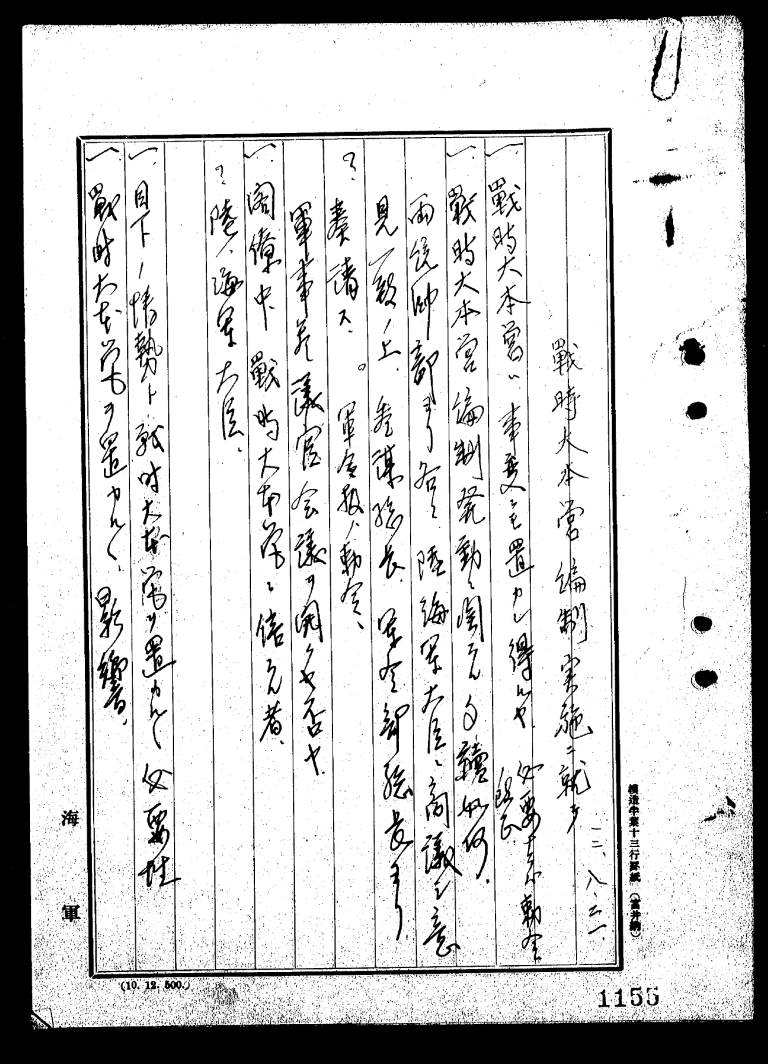 戰時大本営編制実施ニ就テ
一二、八、三一
一、戰時大本営ハ事変ニモ置カレ得ルヤ 必要ナラバ勅令
改正
一、戰時大本営編制発動ニ関スル手續如何、
両統帥部ヨリ各々陸海軍大臣ニ商議シ意
見一致ノ上、参謀総長、軍令部総長ヨリ
奏請ス。軍令扱ノ勅令、
軍事参議官会議ヲ開クヤ否ヤ
一、閣僚中、戰時大本営ニ侍スル者、
陸、海軍大臣、
一、目下ノ情勢ト戰時大本営ヲ置カルヽ必要性
一、戰時大本営ヲ置カルヽ影響、
海軍
模造半葉十三行罫紙
(10. 12. 500.)
1155